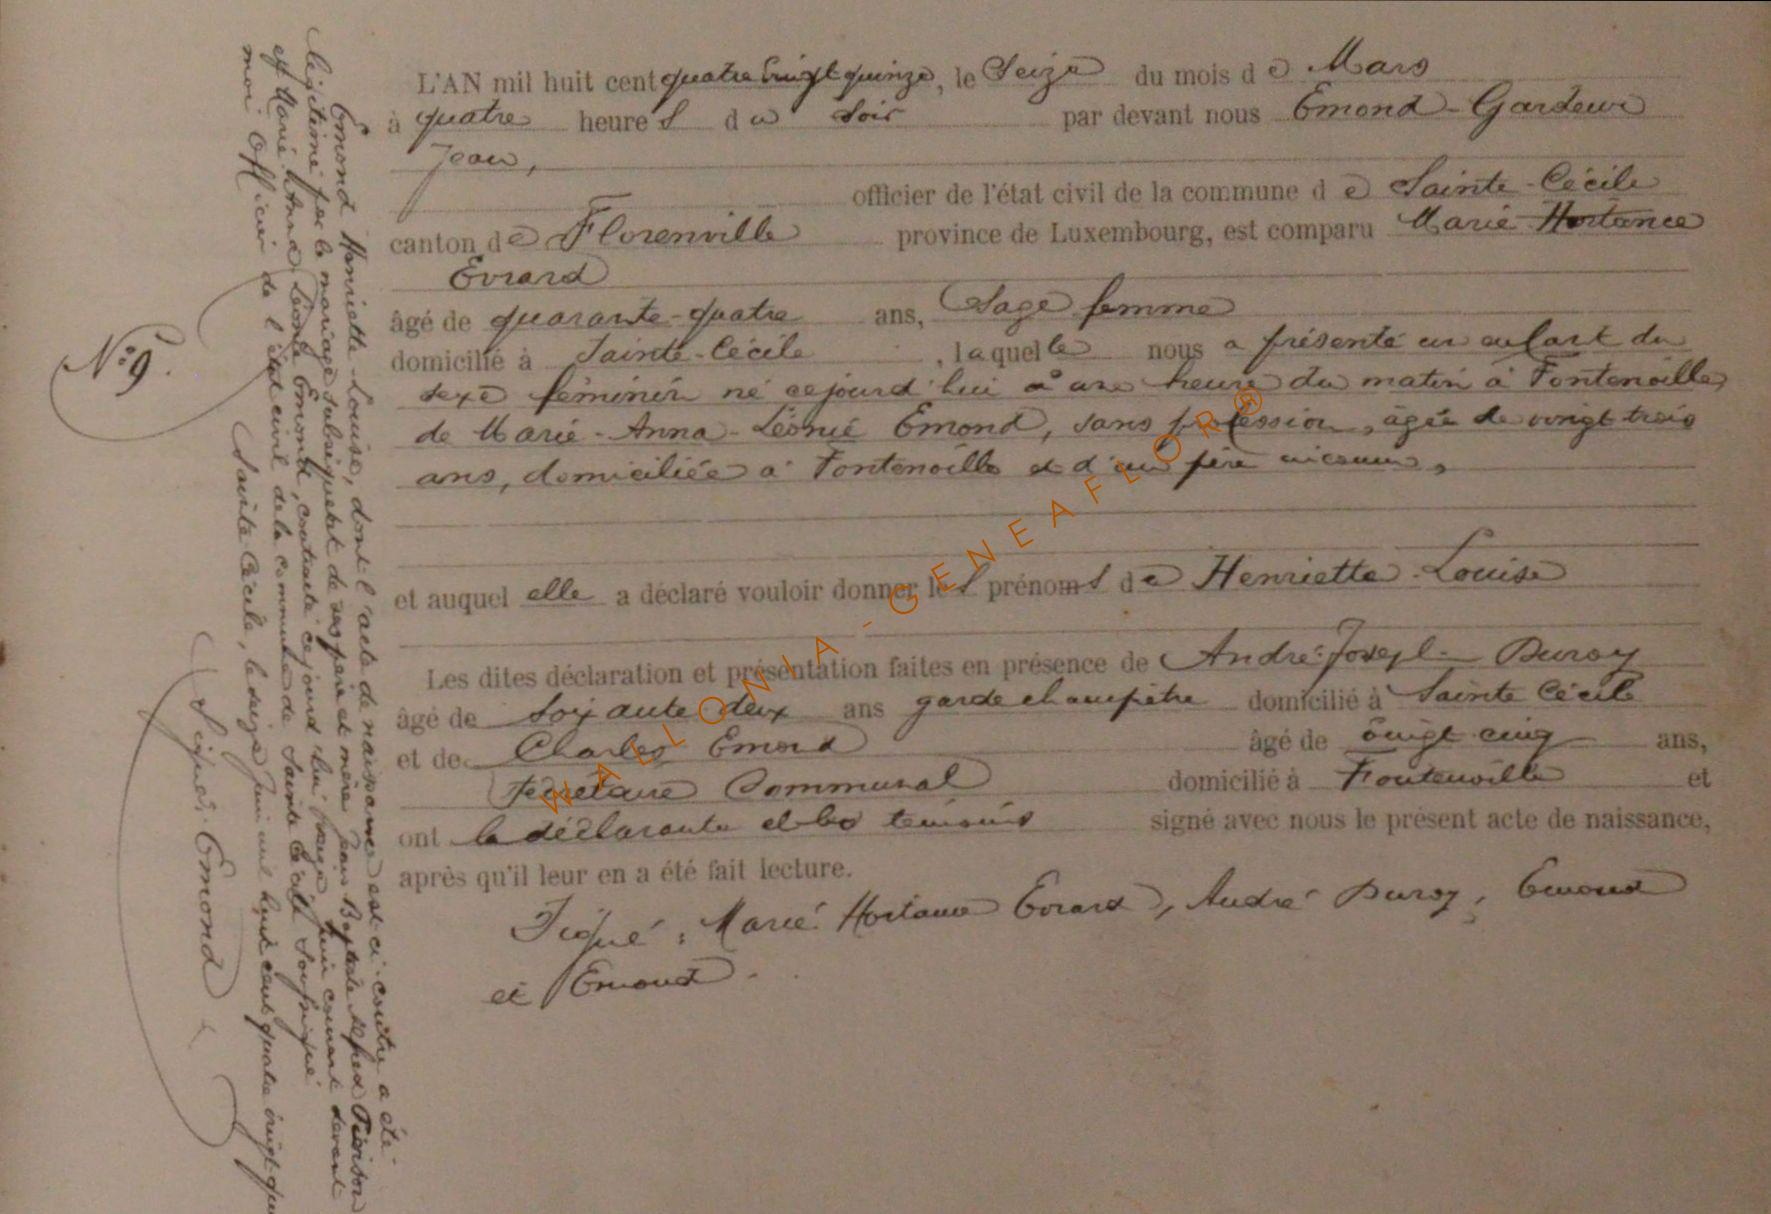 L'AN mil huit cent quatre vingt quinze, le Seize du mois de Mars
à quatre heures du soir par devant nous Emond-Gardeur
Jean,
officier de l'état civil de la commune de Sainte-Cécile
canton de Florenville province de Luxembourg, est comparu Marie Hortance
Evrard
âgé de quarante-quatre ans, Sage femme
domicilié à Sainte-Cécile, laquelle nous a présenté un enfant du
sexe féminin né cejourd'hui à une heure du matin à Fontenoille,
de Marie-Anna-Léonie Emond, sans profession, âgée de vingt trois
ans, domiciliée à Fontenoille et d'un père inconnu,
et auquel elle a déclaré vouloir donner les prénoms de Henriette-Louise
Les dites déclaration et présentation faites en présence de André-Joseph Duroy
âgé de Soixante deux ans garde champêtre domicilié à Sainte Cécile
et de Charles Emond âgé de vingt cinq ans,
Secrétaire Communal domicilié à Fontenoille et
ont la déclarante et les témoins signé avec nous le présent acte de naissance,
après qu'il leur en a été fait lecture.
Signé: Marie Hortance Evrard, André Duroy, Emond
et Emond.
N° 9.
Emond Henriette-Louise, dont l'acte de naissance est ci-contre a été
légitimée par le mariage subséquent de ses père et mère Jean Baptiste Alfred
et Marie Anna Léonie Emond, contracté cejourd'hui seize juin courant devant
moi Officier de l'état civil de la commune de Sainte Cécile soussigné.
Sainte Cécile, le seize juin mil huit cent quatre vingt
Signé: Emond
WALLONIA-GENEAFLOR®